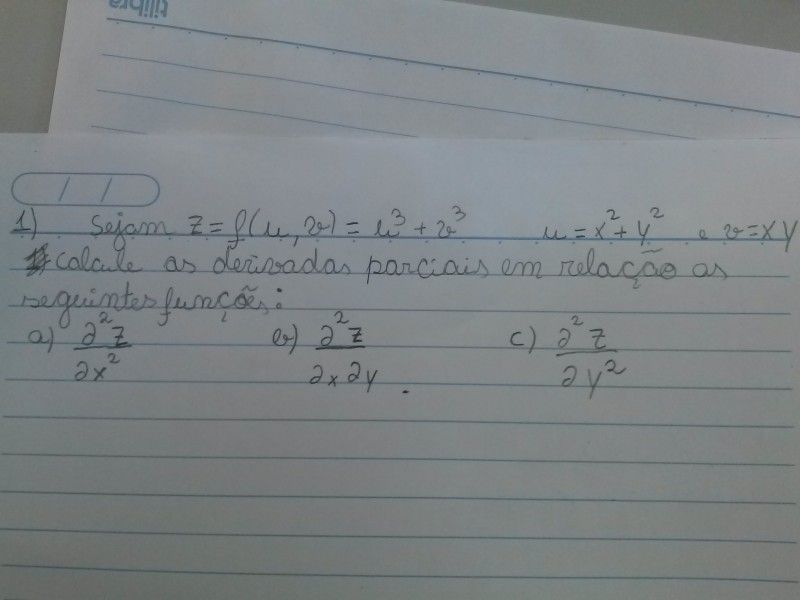 tilibra
/ /
1) Sejam z = f(u, v) = u³ + v³ u = x² + y² e v = xy
calcule as derivadas parciais em relação as
seguintes funções:
a) ∂²z/∂x² b) ∂²z/∂x∂y. c) ∂²z/∂y²